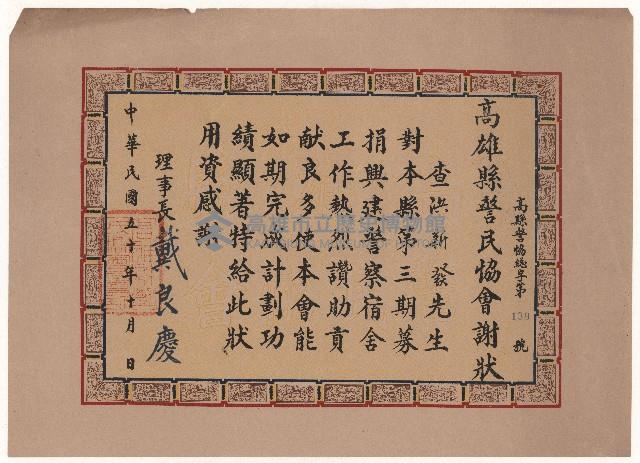 高雄縣警民協會謝狀
高縣警協總字第139號
查洪新發先生
對本縣第三期募
捐興建警察宿舍
工作熱烈讚助貢
献良多使本會能
如期完成計劃功
績顯著特給此狀
用資感謝
理事長戴良慶
中華民國五十年十月 日
高雄市立歷史博物館